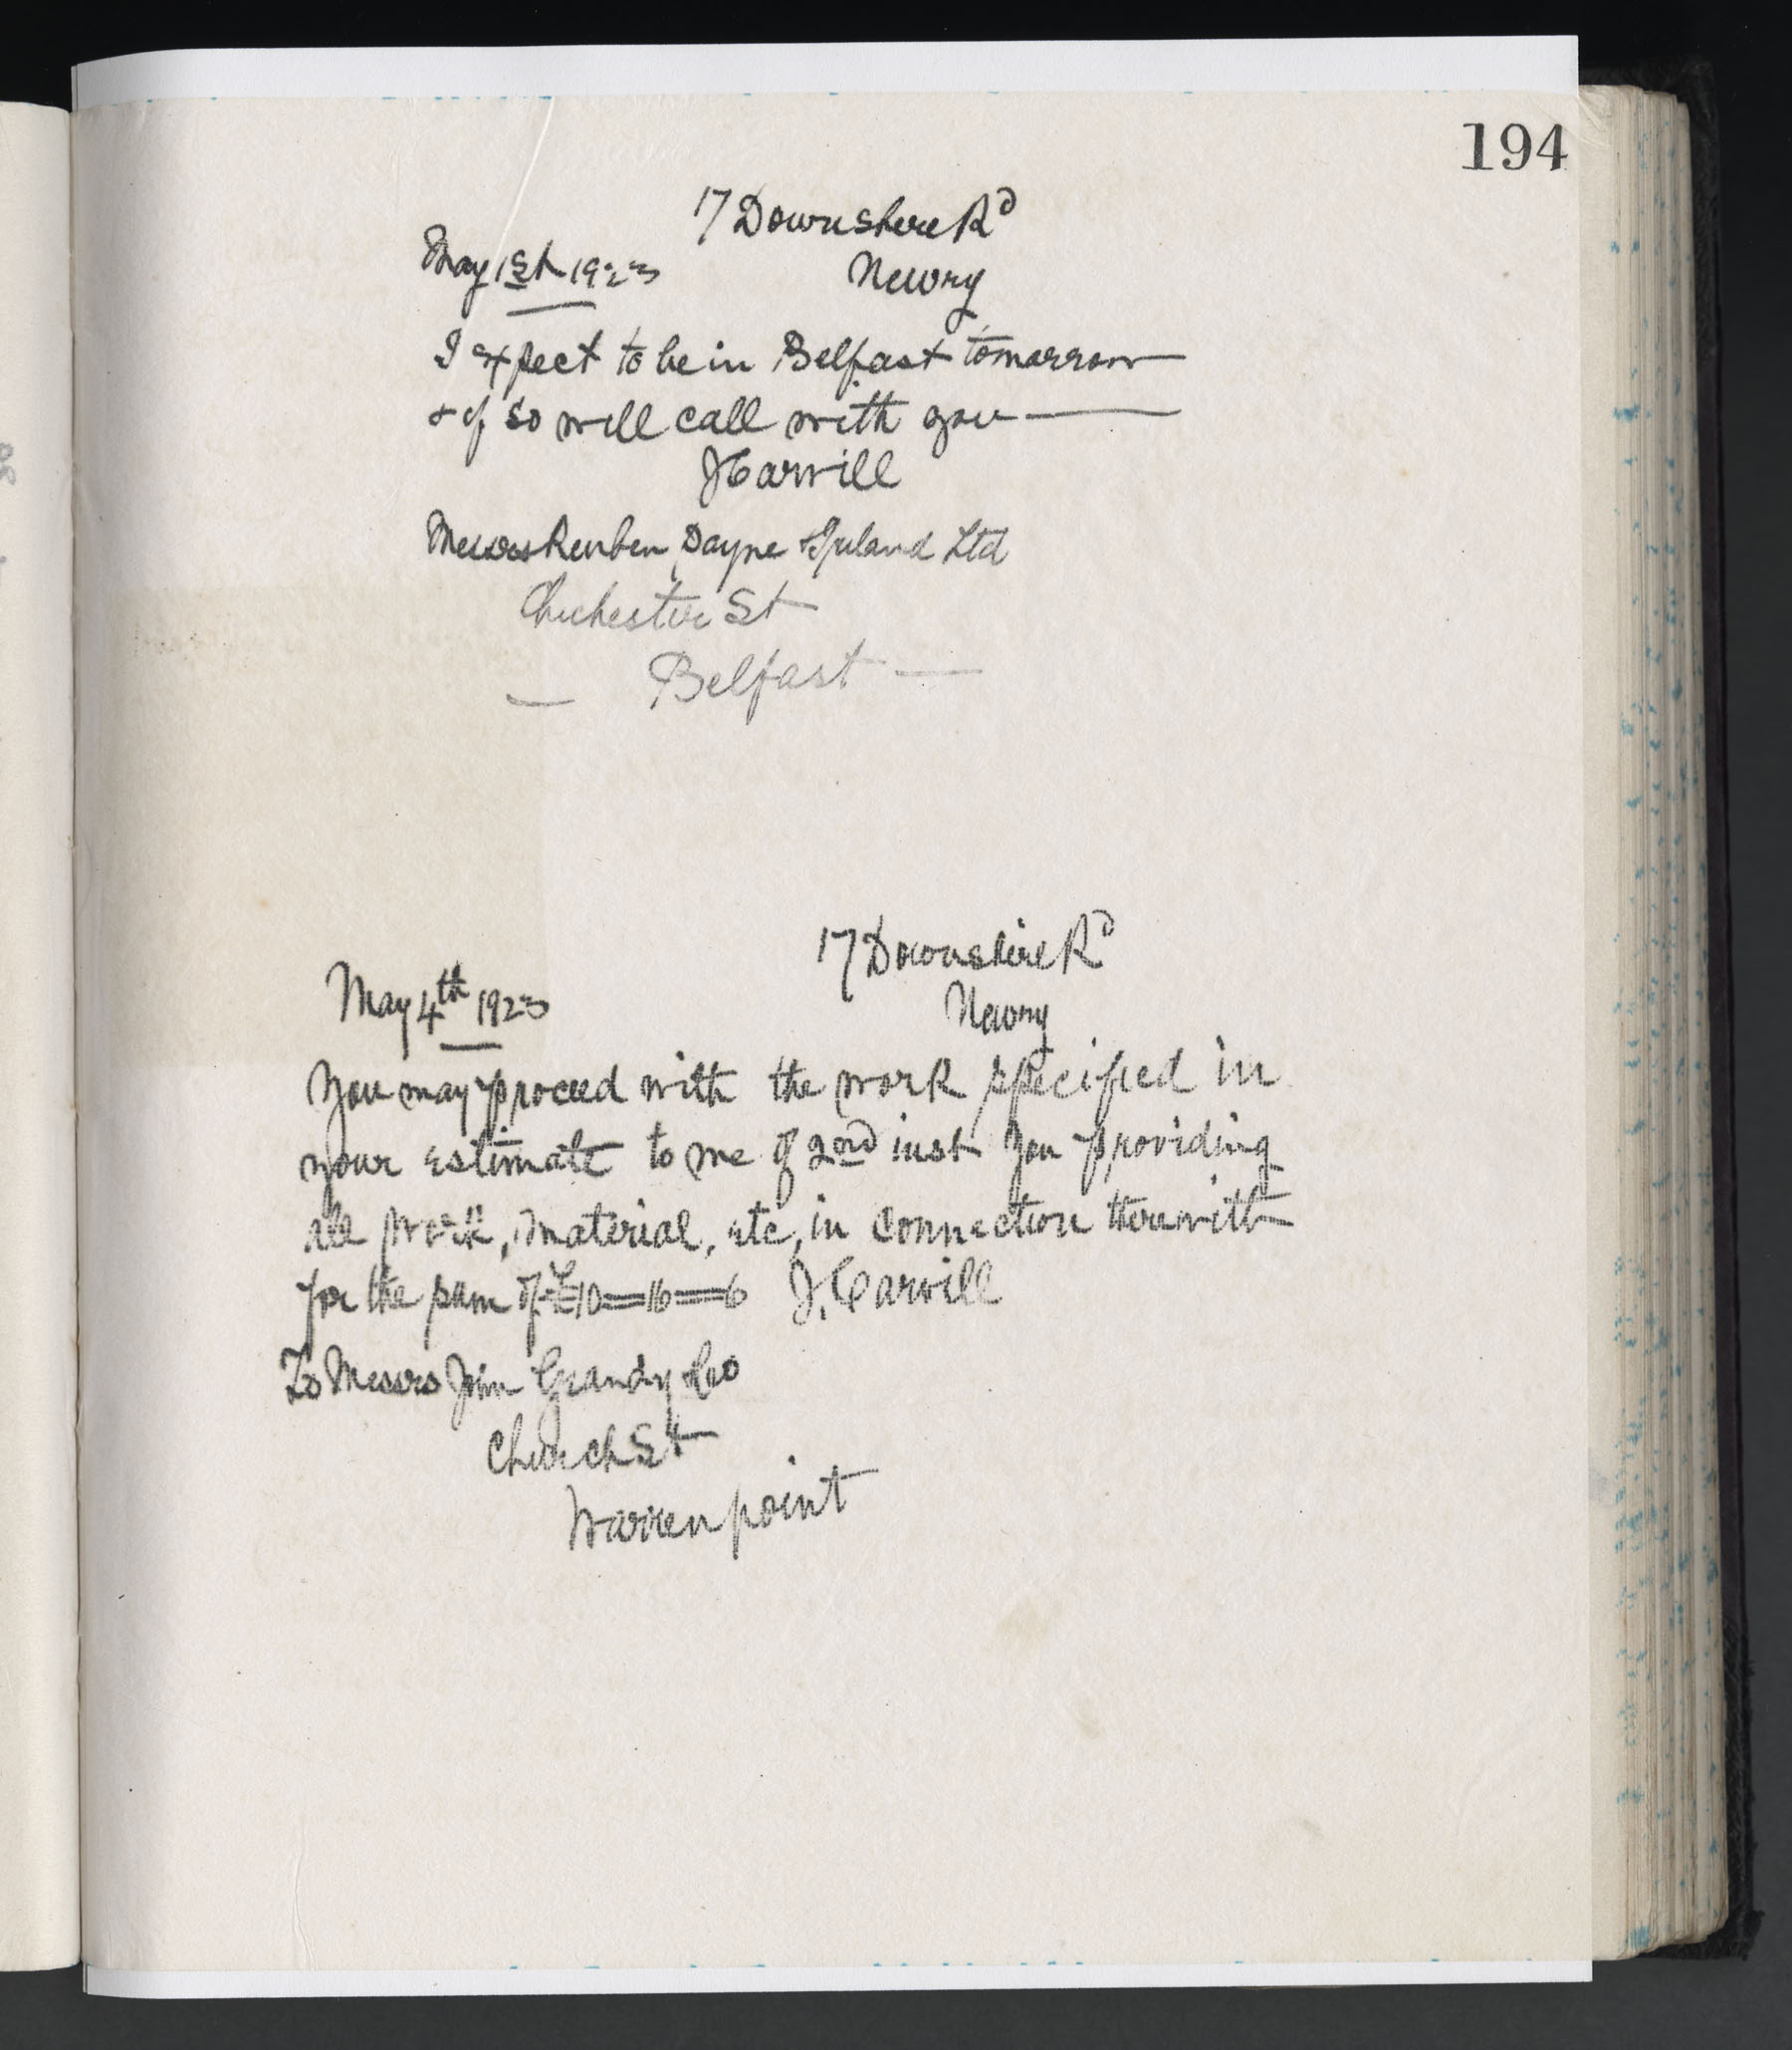 194
17 Downshire Rd
May 1st 1923
Newry
I expect to be in Belfast tomorrow
& if so will call with you
J Carvill
Messrs Reuben Payne Ireland Ltd
Chichester St
Belfast
17 Downshire Rd
May 4th 1923
Newry
You may proceed with the work specified in
your estimate to me of 2nd inst you providing
all work, material, etc, in connection therewith
for the sum of £10=16=6 J. Carvill
To Messrs John Grandy & Co
Church St
Warrenpoint